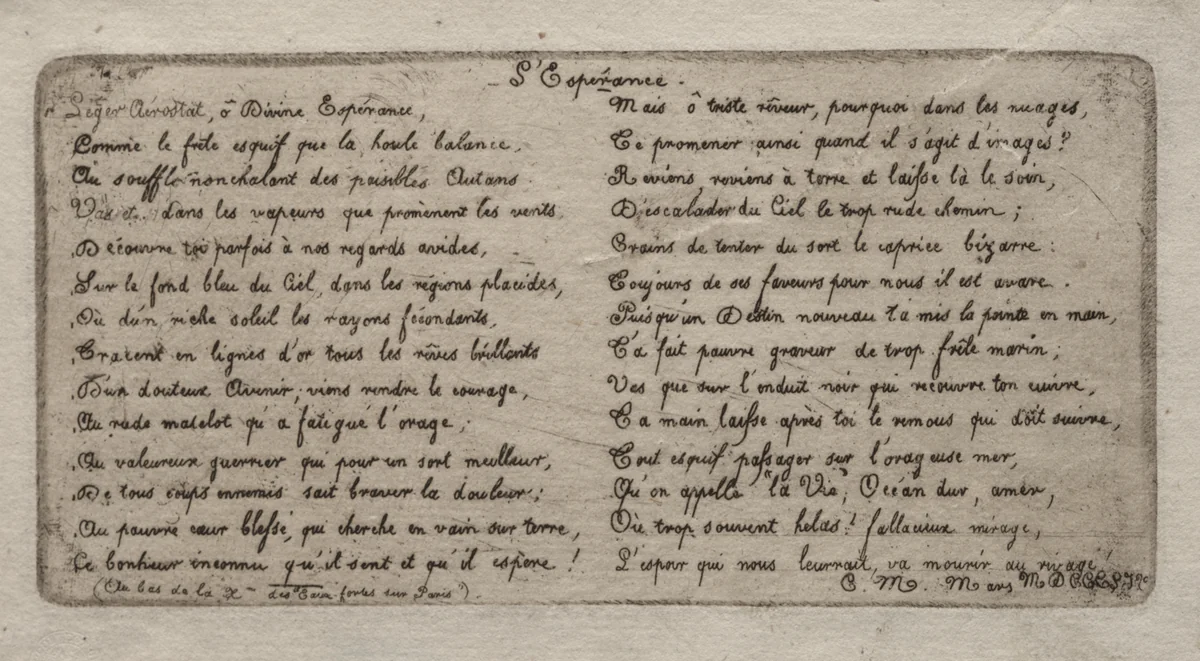 L'Espérance.
Léger Aérostat, ô Divine Espérance,
Comme le frêle esquif que la houle balance,
Au souffle nonchalant des paisibles Autans
Vas et dans les vapeurs que promènent les vents
Découvre toi parfois à nos regards avides,
Sur le fond bleu du Ciel, dans les régions placides,
Où d'un riche soleil les rayons fécondants,
Tracent en lignes d'or tous les rêves brillants
D'un douteux Avenir; viens rendre le courage,
Au rude matelot qu'a fatigué l'orage;
Au valeureux guerrier qui pour un sort meilleur,
De tous coups ennemis sait braver la douleur;
Au pauvre cœur blessé, qui cherche en vain sur terre,
Le bonheur inconnu qu'il sent et qu'il espère!
(Au bas de la X des Eaux-fortes sur Paris).
Mais ô triste rêveur, pourquoi dans les nuages,
Te promener ainsi quand il s'agit d'images?
Reviens, reviens à terre et laisse là le soin,
D'escalader du Ciel le trop rude chemin;
Crains de tenter du sort le caprice bizarre:
Toujours de ses faveurs pour nous il est avare.
Puisqu'un Destin nouveau t'a mis la pointe en main,
T'a fait pauvre graveur de trop frêle marin;
Vas que sur l'enduit noir qui recouvre ton cuivre,
Ta main laisse après toi le remous qui doit suivre,
Tout esquif passager sur l'orageuse mer,
Qu'on appelle "la Vie", Océan dur, amer,
Où trop souvent helas! fallacieux mirage,
L'espoir qui nous leurrait, va mourir au rivage!
C. M. Mars